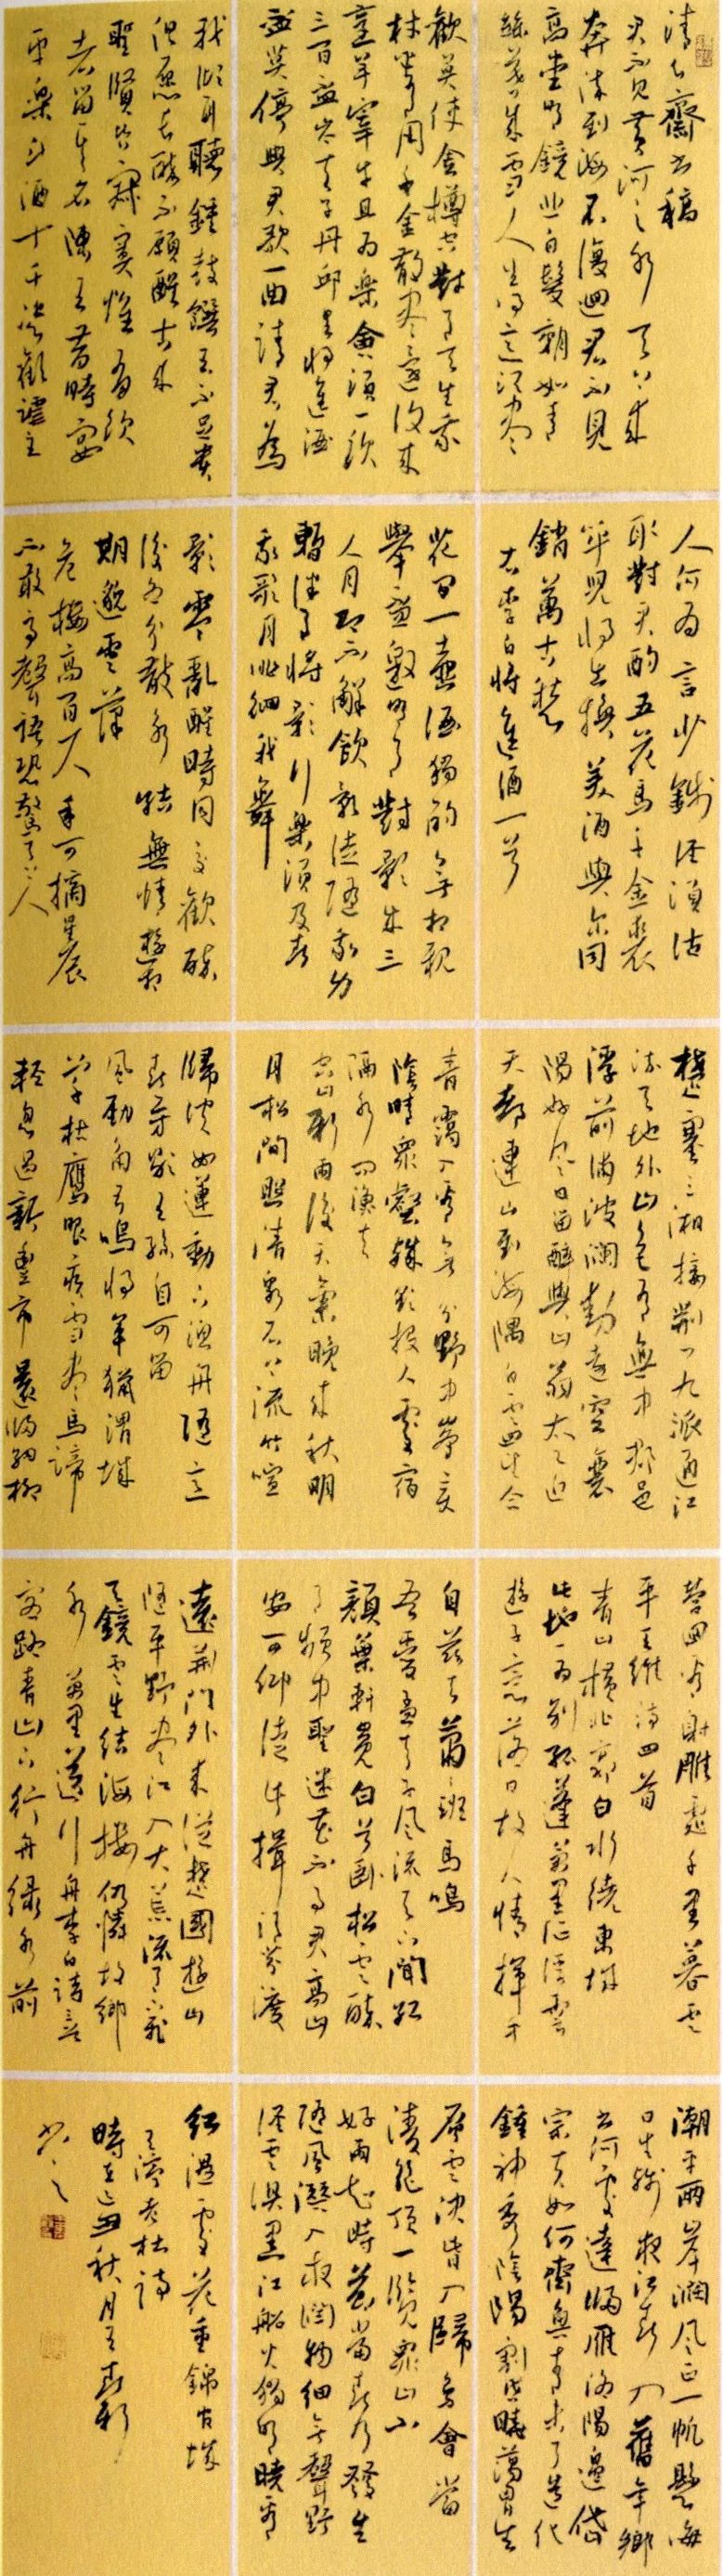 清心齋書稿
君不見黃河之水天上來
奔流到海不復迴君不見
高堂明鏡悲白髮朝如青
絲暮成雪人生得意須盡
歡莫使金樽空對月天生我
材必有用千金散盡還復來
烹羊宰牛且為樂會須一飲
三百盃岑夫子丹邱生將進酒
盃莫停與君歌一曲請君為
我傾耳聽鍾鼓饌玉不足貴
但愿長醉不願醒古來
聖賢皆寂寞惟有飲
者留其名陳王昔時宴
平樂斗酒十千恣歡謔主
人何為言少錢徑須沽
取對君酌五花馬千金裘
呼兒將出換美酒與爾同
銷萬古愁
右李白將進酒一首
花間一壺酒獨酌無相親
舉盃邀明月對影成三
人月既不解飲影徒隨我身
暫伴月將影行樂須及春
我歌月徘徊我舞
影零亂醒時同交歡醉
後各分散永結無情遊相
期邈雲漢
危樓高百尺手可摘星辰
不敢高聲語恐驚天上人
楚塞三湘接荊門九派通江
流天地外山色有無中郡邑
浮前浦波瀾動遠空襄
陽好風日留醉與山翁太乙近
天都連山到海隅白雲迴望合
青靄入看無分野中峯變
陰晴眾壑殊欲投人處宿
隔水問漁夫
空山新雨後天氣晚來秋明
月松間照清泉石上流竹喧
歸浣女蓮動下漁舟隨意
春芳歇王孫自可留
風勁角弓鳴將軍獵渭城
草枯鷹眼疾雪盡馬蹄
輕忽過新豐市還歸細柳
營回看射雕處千里暮雲
平王維詩四首
青山橫北郭白水繞東城
此地一為別孤蓬萬里征浮雲
遊子意落日故人情揮手
自茲去蕭班馬鳴
吾愛孟夫子風流天下聞紅
顏棄軒冕白首臥松雲醉
月頻中聖迷花不事君高山
安可仰徒此揖清芬渡
遠荊門外來從楚國遊山
隨平野盡江入大荒流月下飛
天鏡雲生結海樓仍憐故鄉
水萬里送行舟李白詩三首
客路青山下行舟綠水前
潮平兩岸闊風正一帆懸海
日生殘夜江春入舊年鄉
書何處達歸雁洛陽邊岱
宗夫如何齊魯青未了造化
鍾神秀陰陽割昏曉蕩胸生
層雲決眥入歸鳥會當
凌絕頂一覽眾山小
好雨知時節當春乃發生
隨風潛入夜潤物細無聲野
徑雲俱黑江船火獨明曉看
紅濕處花重錦官城
王灣老杜詩
時在秋月王春新
書之